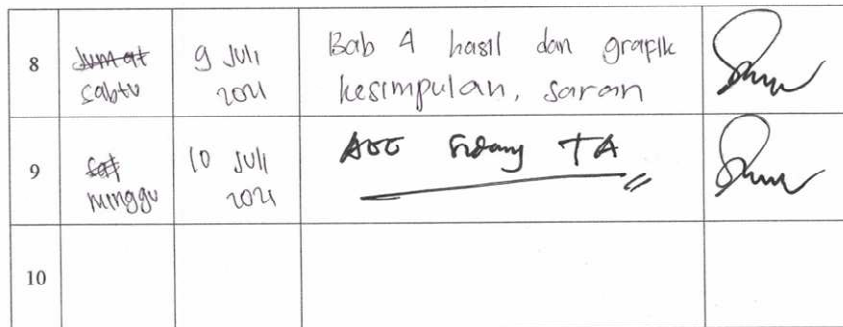 8
Jumat
sabtu
9 Juli
2021
Bab 4 hasil dan grafik
kesimpulan, saran
9
Sat
minggu
10 Juli
2021
ACC Sidang TA
10